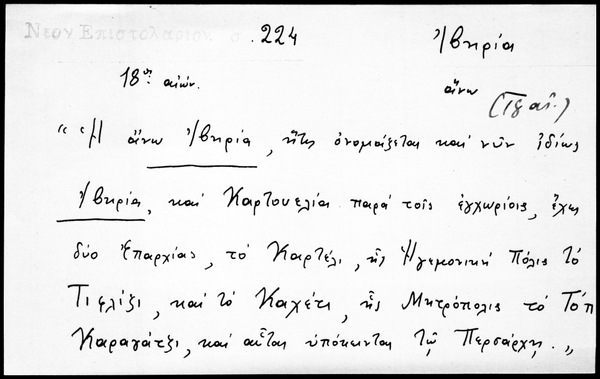 Νεον Επιστολαριον σ. 224
Ἰβηρία
18ος αἰών.
ἄνω
" Ἡ ἄνω Ἰβηρία, ἥτις ὀνομάζεται καὶ νῦν ἰδίως
Ἰβηρία, καὶ Καρτουελία παρὰ τοῖς ἐγχωρίοις, ἔχει
δύο Ἐπαρχίας, τὸ Καρτέλι, ἧς Ἡγεμονικὴ Πόλις τὸ
Τιφλίζι, καὶ τὸ Καχέτι, ἧς Μητρόπολις τὸ Τόπ
Καραγάτζι, καὶ αὗται ὑπόκεινται τῷ Περσάρχῃ. "